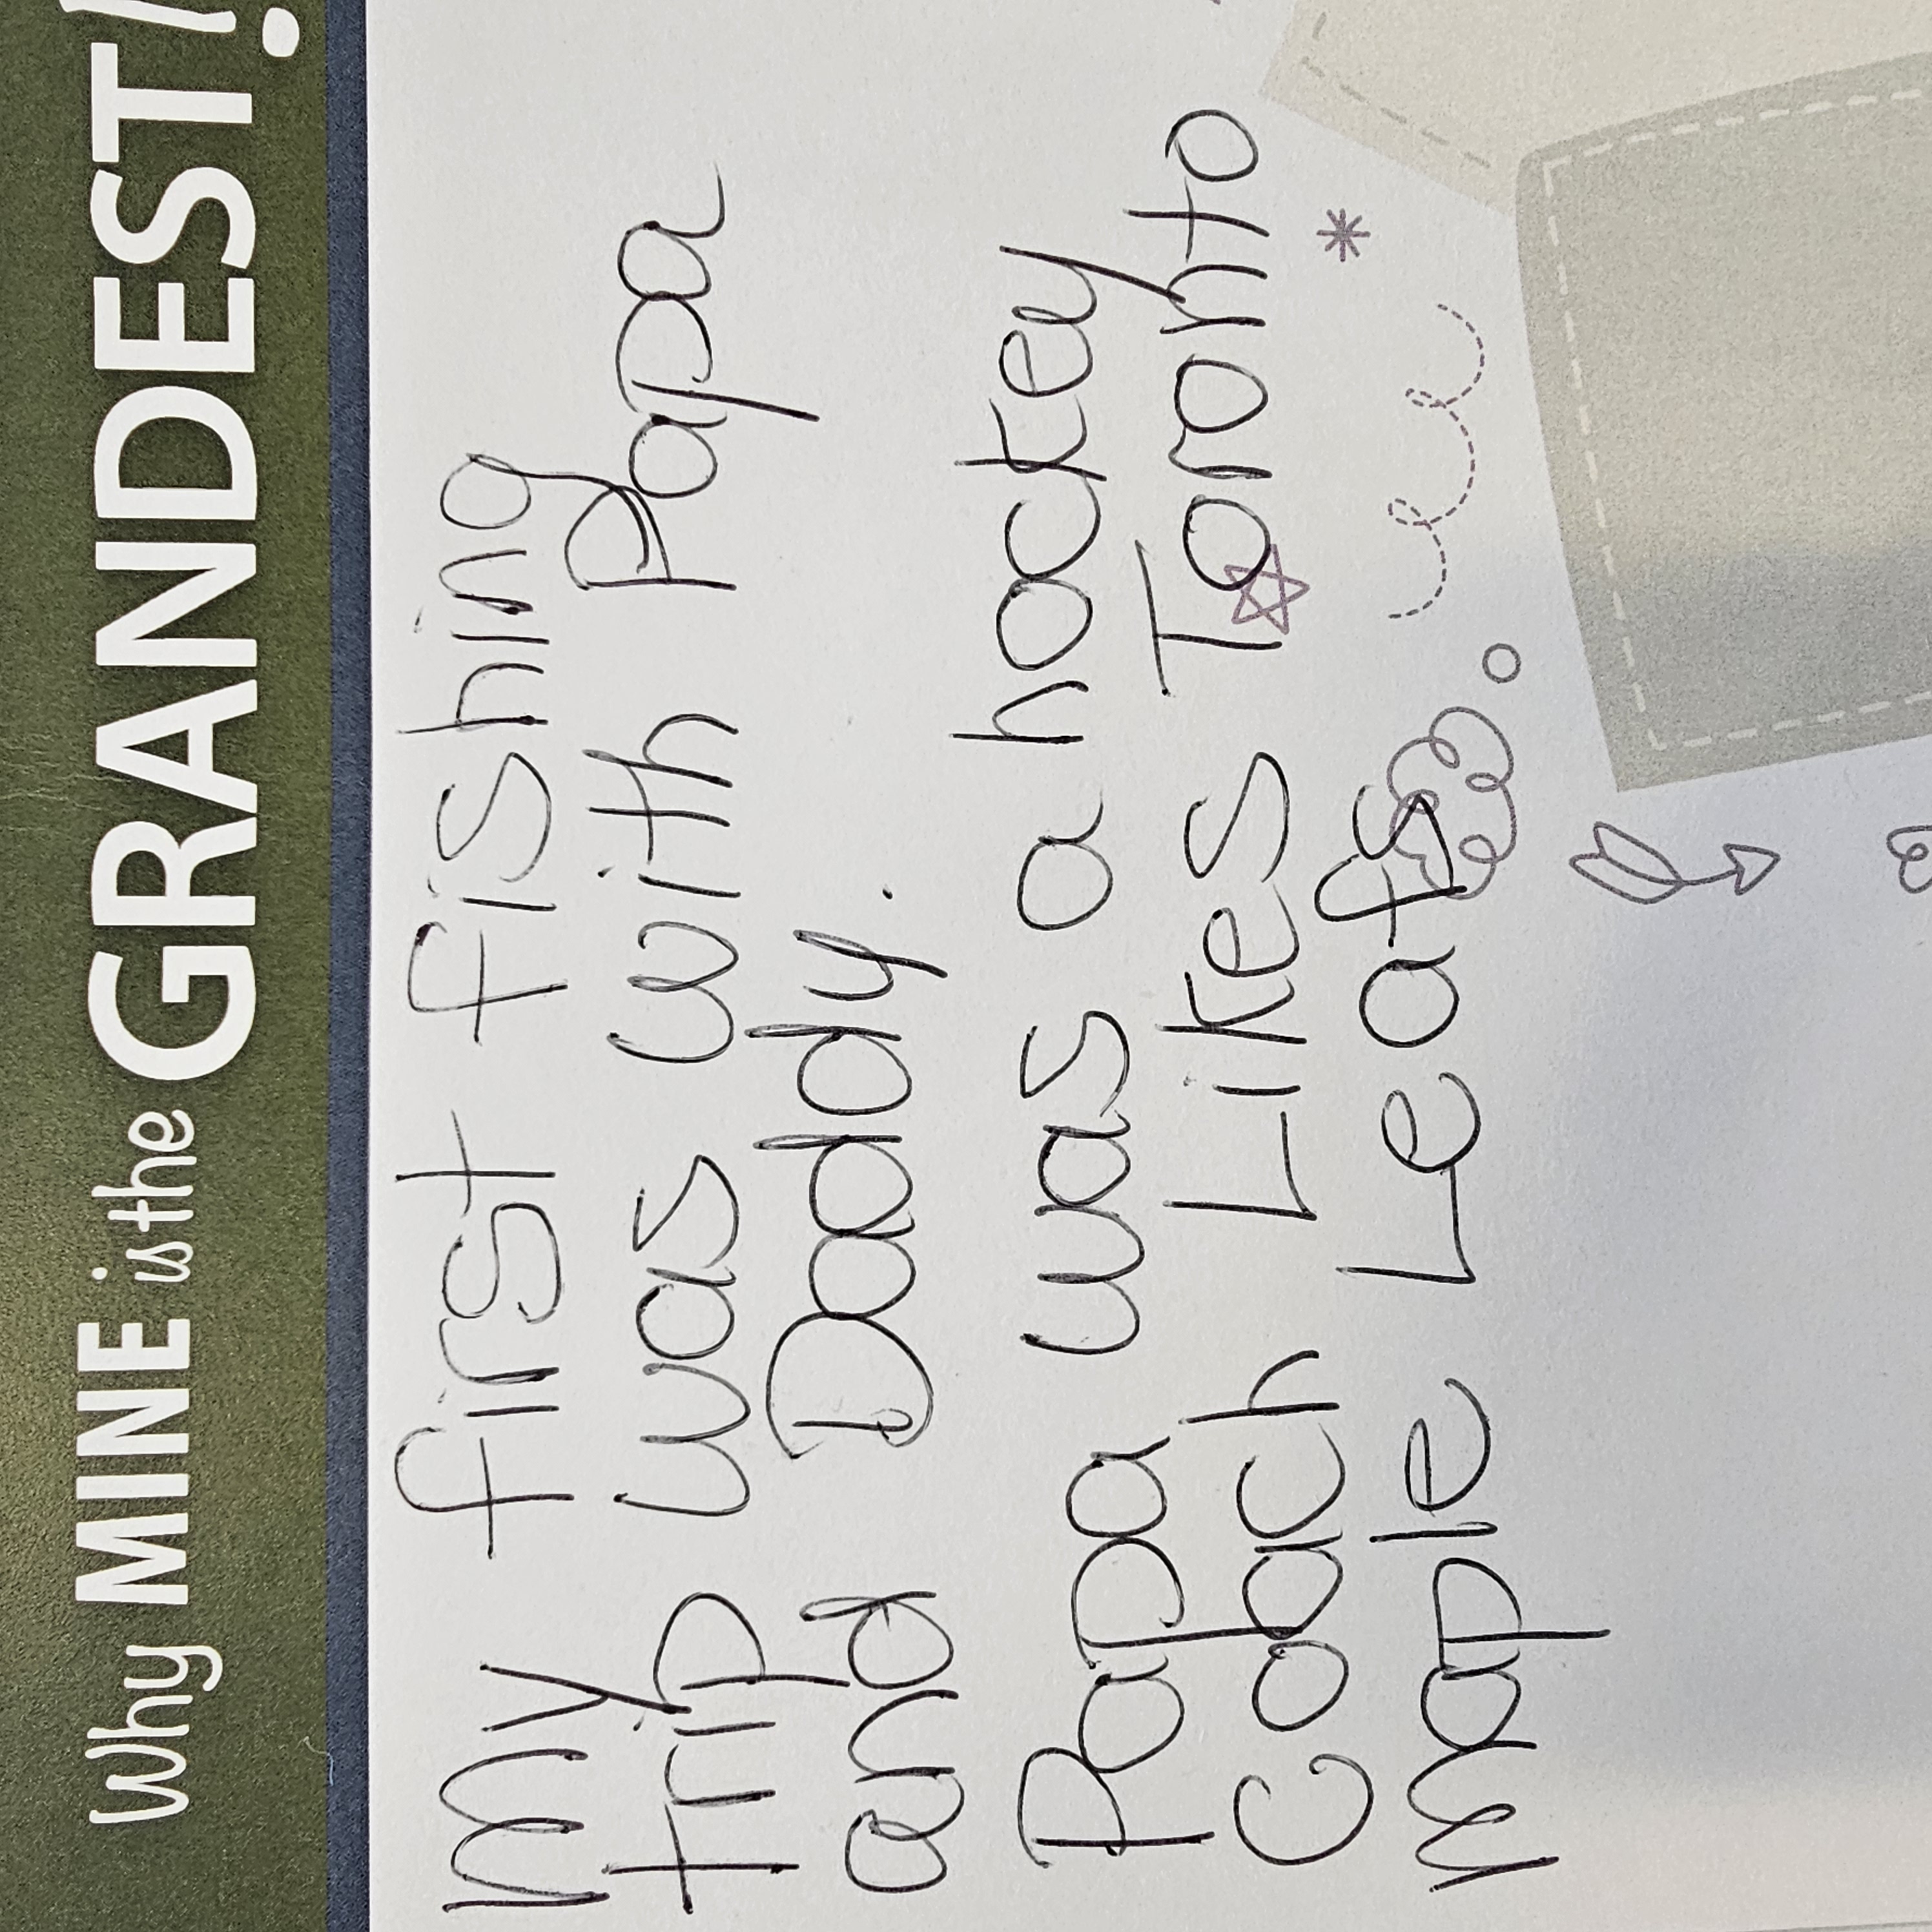 Why MINE is the GRANDEST!
my first fishing
trip was with Papa
and Daddy.
Papa was a hockey
Coach Likes Toronto
maple Leafs